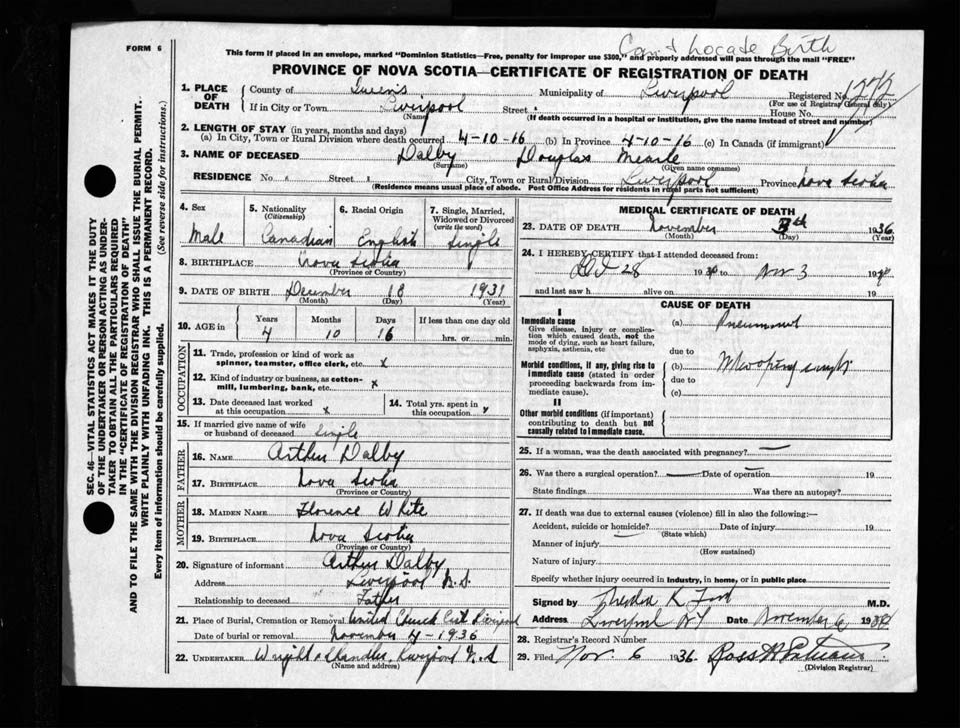 FORM 6
Can't Locate Birth
This form if placed in an envelope, marked "Dominion Statistics—Free, penalty for improper use $300," and properly addressed will pass through the mail "FREE"
PROVINCE OF NOVA SCOTIA—CERTIFICATE OF REGISTRATION OF DEATH
1. PLACE OF DEATH County of Queens Municipality of Liverpool Registered No. 1272
(For use of Registrar General only)
If in City or Town Liverpool Street House No.
(Name) (If death occurred in a hospital or institution, give the name instead of street and number)
2. LENGTH OF STAY (in years, months and days)
(a) In City, Town or Rural Division where death occurred 4-10-16 (b) In Province 4-10-16 (c) In Canada (if immigrant)
3. NAME OF DECEASED Dalby Douglas Mearle
(Surname) (Given name or names)
RESIDENCE No. Street City, Town or Rural Division Liverpool Province Nova Scotia
(Residence means usual place of abode. Post Office Address for residents in rural parts not sufficient)
4. Sex Male
5. Nationality (Citizenship) Canadian
6. Racial Origin English
7. Single, Married, Widowed or Divorced (write the word) Single
8. BIRTHPLACE Nova Scotia
(Province or Country)
9. DATE OF BIRTH December 18 1931
(Month) (Day) (Year)
10. AGE in Years Months Days If less than one day old
4 10 16 hrs. or min.
OCCUPATION
11. Trade, profession or kind of work as spinner, teamster, office clerk, etc. x
12. Kind of industry or business, as cotton-mill, lumbering, bank, etc. x
13. Date deceased last worked at this occupation x
14. Total yrs. spent in this occupation
15. If married give name of wife or husband of deceased Single
FATHER
16. NAME Arthur Dalby
17. BIRTHPLACE Nova Scotia
(Province or Country)
MOTHER
18. MAIDEN NAME Florence White
19. BIRTHPLACE Nova Scotia
(Province or Country)
20. Signature of informant Arthur Dalby
Address Liverpool N.S.
Relationship to deceased Father
21. Place of Burial, Cremation or Removal United Church Liverpool
Date of burial or removal November 4 - 1936
22. UNDERTAKER Chandler, Liverpool N.S
(Name and address)
MEDICAL CERTIFICATE OF DEATH
23. DATE OF DEATH November 3th 1936
(Month) (Day) (Year)
24. I HEREBY CERTIFY that I attended deceased from:
Oct 28 19 to Nov 3 19
and last saw h alive on 19
CAUSE OF DEATH
I
Immediate cause
Give disease, injury or complication which caused death, not the mode of dying, such as heart failure, asphyxia, asthenia, etc
(a) Pneumonia
due to
Morbid conditions, if any, giving rise to immediate cause (stated in order proceeding backwards from immediate cause).
(b) Whooping cough
due to
(c)
II
Other morbid conditions (if important) contributing to death but not causally related to immediate cause.
25. If a woman, was the death associated with pregnancy?
26. Was there a surgical operation? Date of operation 19
State findings Was there an autopsy?
27. If death was due to external causes (violence) fill in also the following:—
Accident, suicide or homicide? Date of injury 19
(State which)
Manner of injury
(How sustained)
Nature of injury
Specify whether injury occurred in Industry, in home, or in public place
Signed by K Ford M.D.
Address Liverpool NS Date November 6 19
28. Registrar's Record Number
29. Filed Nov. 6 1936
(Division Registrar)
SEC. 46—VITAL STATISTICS ACT MAKES IT THE DUTY
OF THE UNDERTAKER OR PERSON ACTING AS UNDER-
TAKER TO OBTAIN ALL THE PARTICULARS REQUIRED
IN THE "CERTIFICATE OF REGISTRATION OF DEATH"
AND TO FILE THE SAME WITH THE DIVISION REGISTRAR WHO SHALL ISSUE THE BURIAL PERMIT.
WRITE PLAINLY WITH UNFADING INK. THIS IS A PERMANENT RECORD.
Every item of information should be carefully supplied. (See reverse side for instructions.)